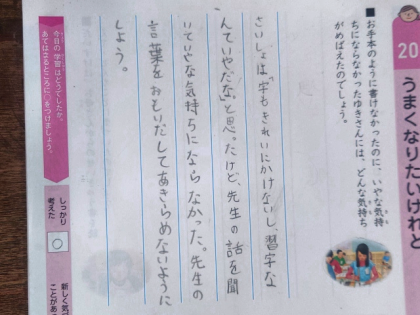 20
うまくなりたいけれど
■お手本のように書けなかったのに、いやな気持
ちにならなかったゆきさんには、どんな気持ち
がめばえたのでしょう。
さいしょは「字もきれいにかけないし、習字な
んていやだな」と思ったけど、先生の話を聞
いていやな気持ちにならなかった。先生の
言葉をおもいだしてあきらめないように
しよう。
今日の学習はどうでしたか。
あてはまるところに○をつけましょう。
しっかり
考えた
○
新しく気づ
ことがあ